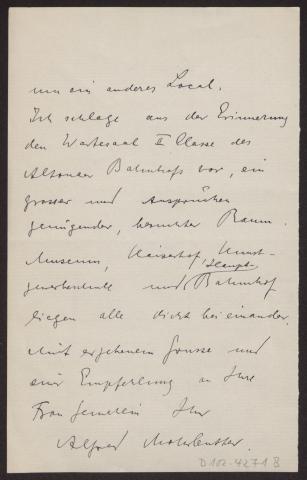 um ein anderes Local.
Ich schlage aus der Erinnerung
den Wartesaal II Classe des
Altonaer Bahnhofs vor, ein
grosser und Ansprüchen
genügender, besuchter Raum.
Museum, Kaiserhof, Kunst-
gewerbeschule und Haupt Bahnhof
liegen alle dicht bei einander.
Mit ergebenem Grusse und
einer Empfehlung an Ihre
Frau Gemahlin Ihr
Alfred Mohrbutter.
D 102-4271 B